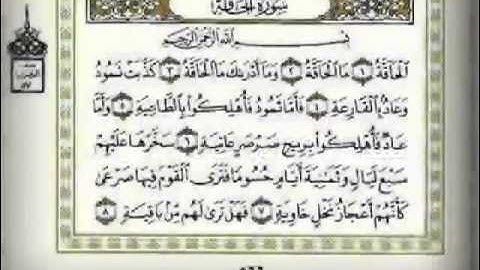 سُورَةُ الحَاقَّةِ
بِسْمِ اللَّهِ الرَّحْمَٰنِ الرَّحِيمِ
الْحَاقَّةُ ١ مَا الْحَاقَّةُ ٢ وَمَا أَدْرَىٰكَ مَا الْحَاقَّةُ ٣ كَذَّبَتْ ثَمُودُ
وَعَادٌ بِالْقَارِعَةِ ٤ فَأَمَّا ثَمُودُ فَأُهْلِكُوا بِالطَّاغِيَةِ ٥ وَأَمَّا
عَادٌ فَأُهْلِكُوا بِرِيحٍ صَرْصَرٍ عَاتِيَةٍ ٦ سَخَّرَهَا عَلَيْهِمْ
سَبْعَ لَيَالٍ وَثَمَٰنِيَةَ أَيَّامٍ حُسُومًا فَتَرَى الْقَوْمَ فِيهَا صَرْعَىٰ
كَأَنَّهُمْ أَعْجَازُ نَخْلٍ خَاوِيَةٍ ٧ فَهَلْ تَرَىٰ لَهُم مِّنۢ بَاقِيَةٍ ٨
٥٦٦